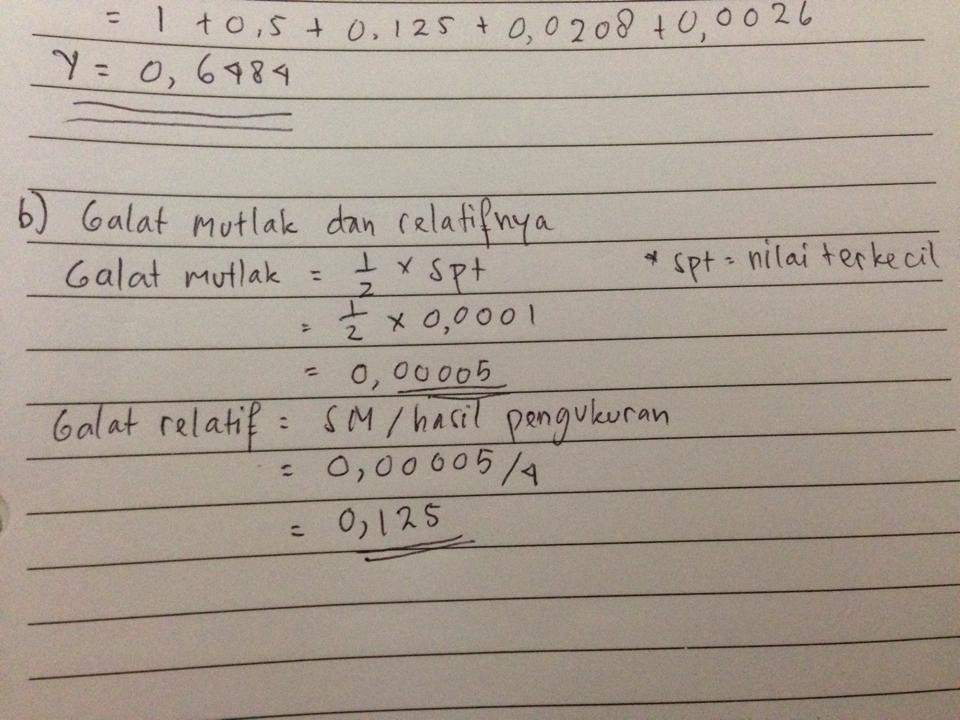 = 1 + 0,5 + 0,125 + 0,0208 + 0,0026
Y = 0,6484
b) Galat mutlak dan relatifnya
Galat mutlak = 1/2 × spt * spt = nilai terkecil
= 1/2 × 0,0001
= 0,00005
Galat relatif = SM / hasil pengukuran
= 0,00005/4
= 0,125